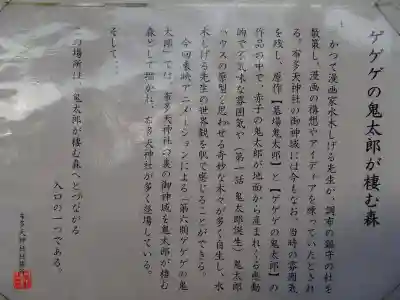 ゲゲゲの鬼太郎が棲む森
かつて漫画家水木しげる先生が、調布の鎮守の杜を
散策し、漫画の構想やアイディアを練っていたとされ
る。布多天神社の御神域には今もなお、当時の雰囲気
を残し、原作【墓場鬼太郎】と【ゲゲゲの鬼太郎】の
作品の中で、赤子の鬼太郎が地面から産まれ
的で不気味な雰囲気や（第一話 鬼太郎誕生）鬼太郎
ハウスの原型と思わせる奇妙な木々が多く自生し、水
木しげる先生の世界観を肌で感じることができる。
今回東映アニメーションによる「第六期ゲゲゲの鬼
太郎」では、布多天神社の裏の御神域を鬼太郎が棲む
森として描かれ、布多天神社が多く登場している。
そして、
この場所は、鬼太郎が棲む森へとつながる
入口の一つである。
布多天神社社務所